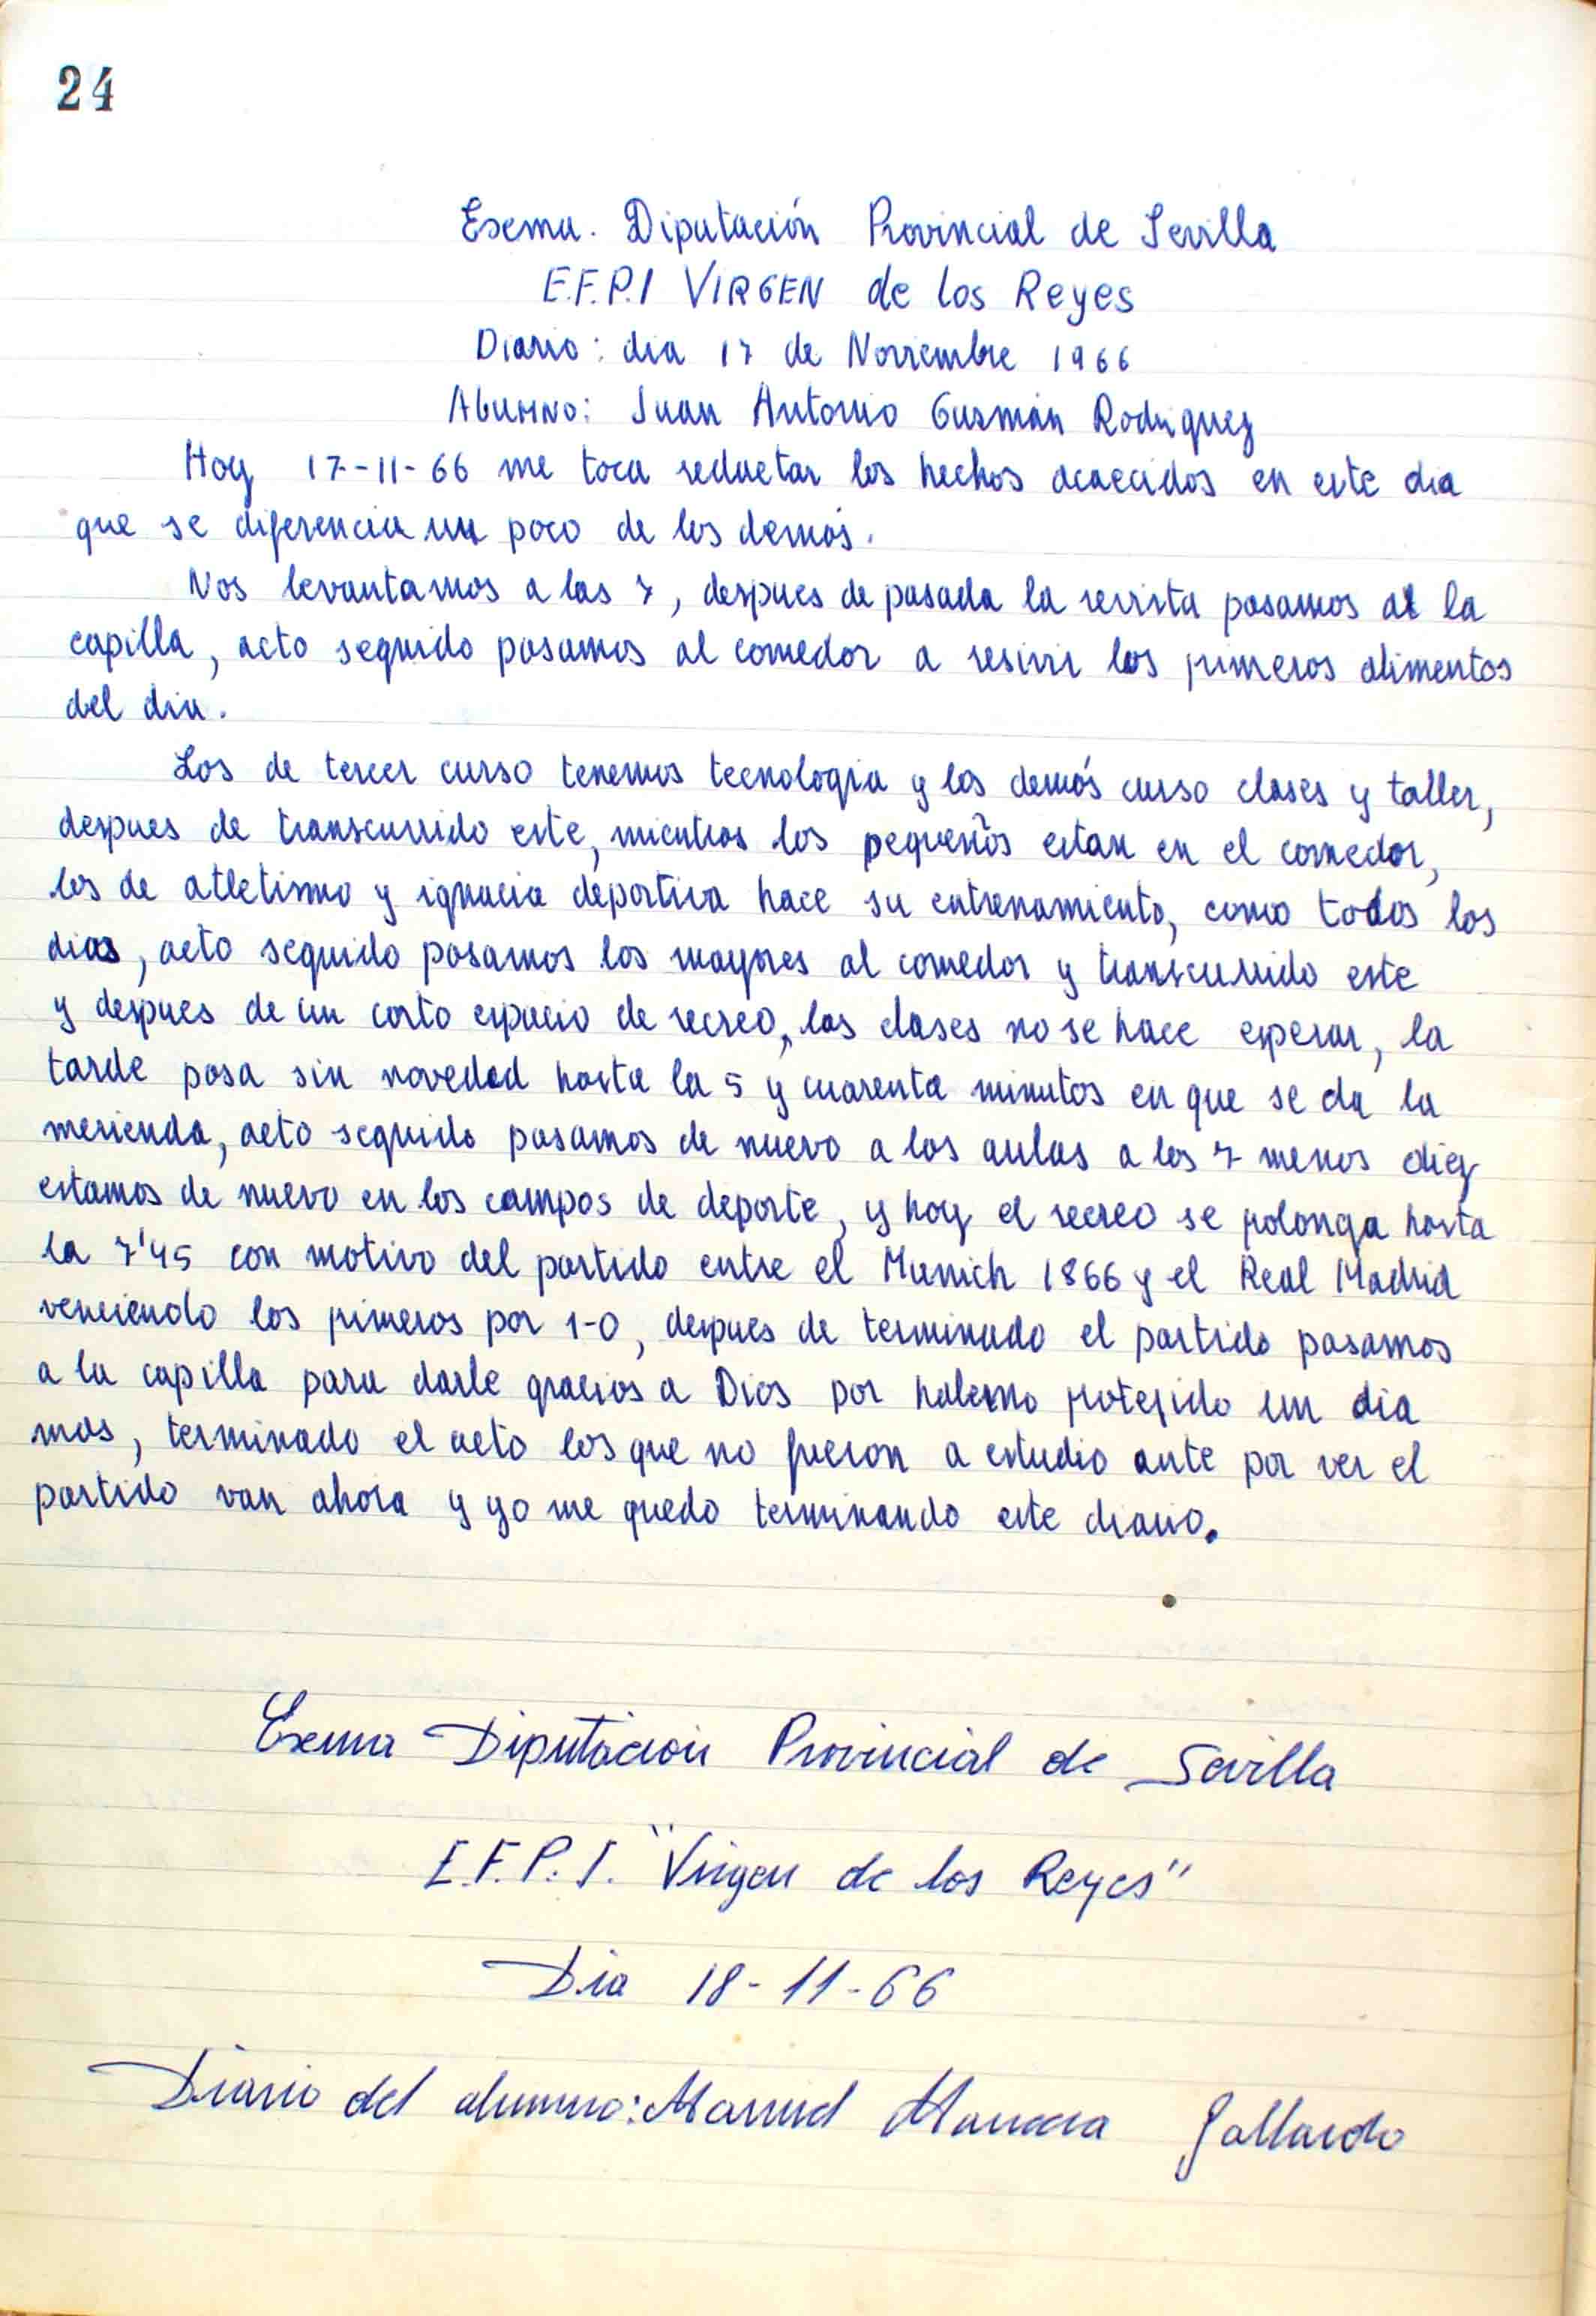 24
Exema. Diputación Provincial de Sevilla
E.F.P.I VIRGEN de los Reyes
Diario: dia 17 de Noviembre 1966
Alumno: Juan Antonio Guzmán Rodriguez
Hoy 17-11-66 me toca reductar los hechos acaecidos en este dia
que se diferencia un poco de los demás.
Nos levantamos a las 7, despues de pasada la revista pasamos al la
capilla, acto seguido pasamos al comedor a resivir los primeros alimentos
del dia.
Los de tercer curso tenemos tecnologia y los demás curso clases y taller,
despues de transcurrido este, mientras los pequeños estan en el comedor,
los de atletismo y ignacia deportiva hace su entrenamiento, como todos los
dias, acto seguido pasamos los mayores al comedor y transcurrido este
y despues de un corto espacio de recreo, las clases no se hace esperar, la
tarde pasa sin novedad hasta la 5 y cuarenta minutos en que se da la
merienda, acto seguido pasamos de nuevo a las aulas a las 7 menos diez
estamos de nuevo en los campos de deporte, y hoy el recreo se prolonga hasta
la 7'45 con motivo del partido entre el Munich 1866 y el Real Madrid
venciendo los primeros por 1-0, despues de terminado el partido pasamos
a la capilla para darle gracias a Dios por haberno protejido un dia
mas, terminado el acto los que no fueron a estudio ante por ver el
partido van ahora y yo me quedo terminando este diario.
Exema Diputación Provincial de Sevilla
E.F.P.I. "Virgen de los Reyes"
Dia 18-11-66
Diario del alumno: Manuel Gallardo